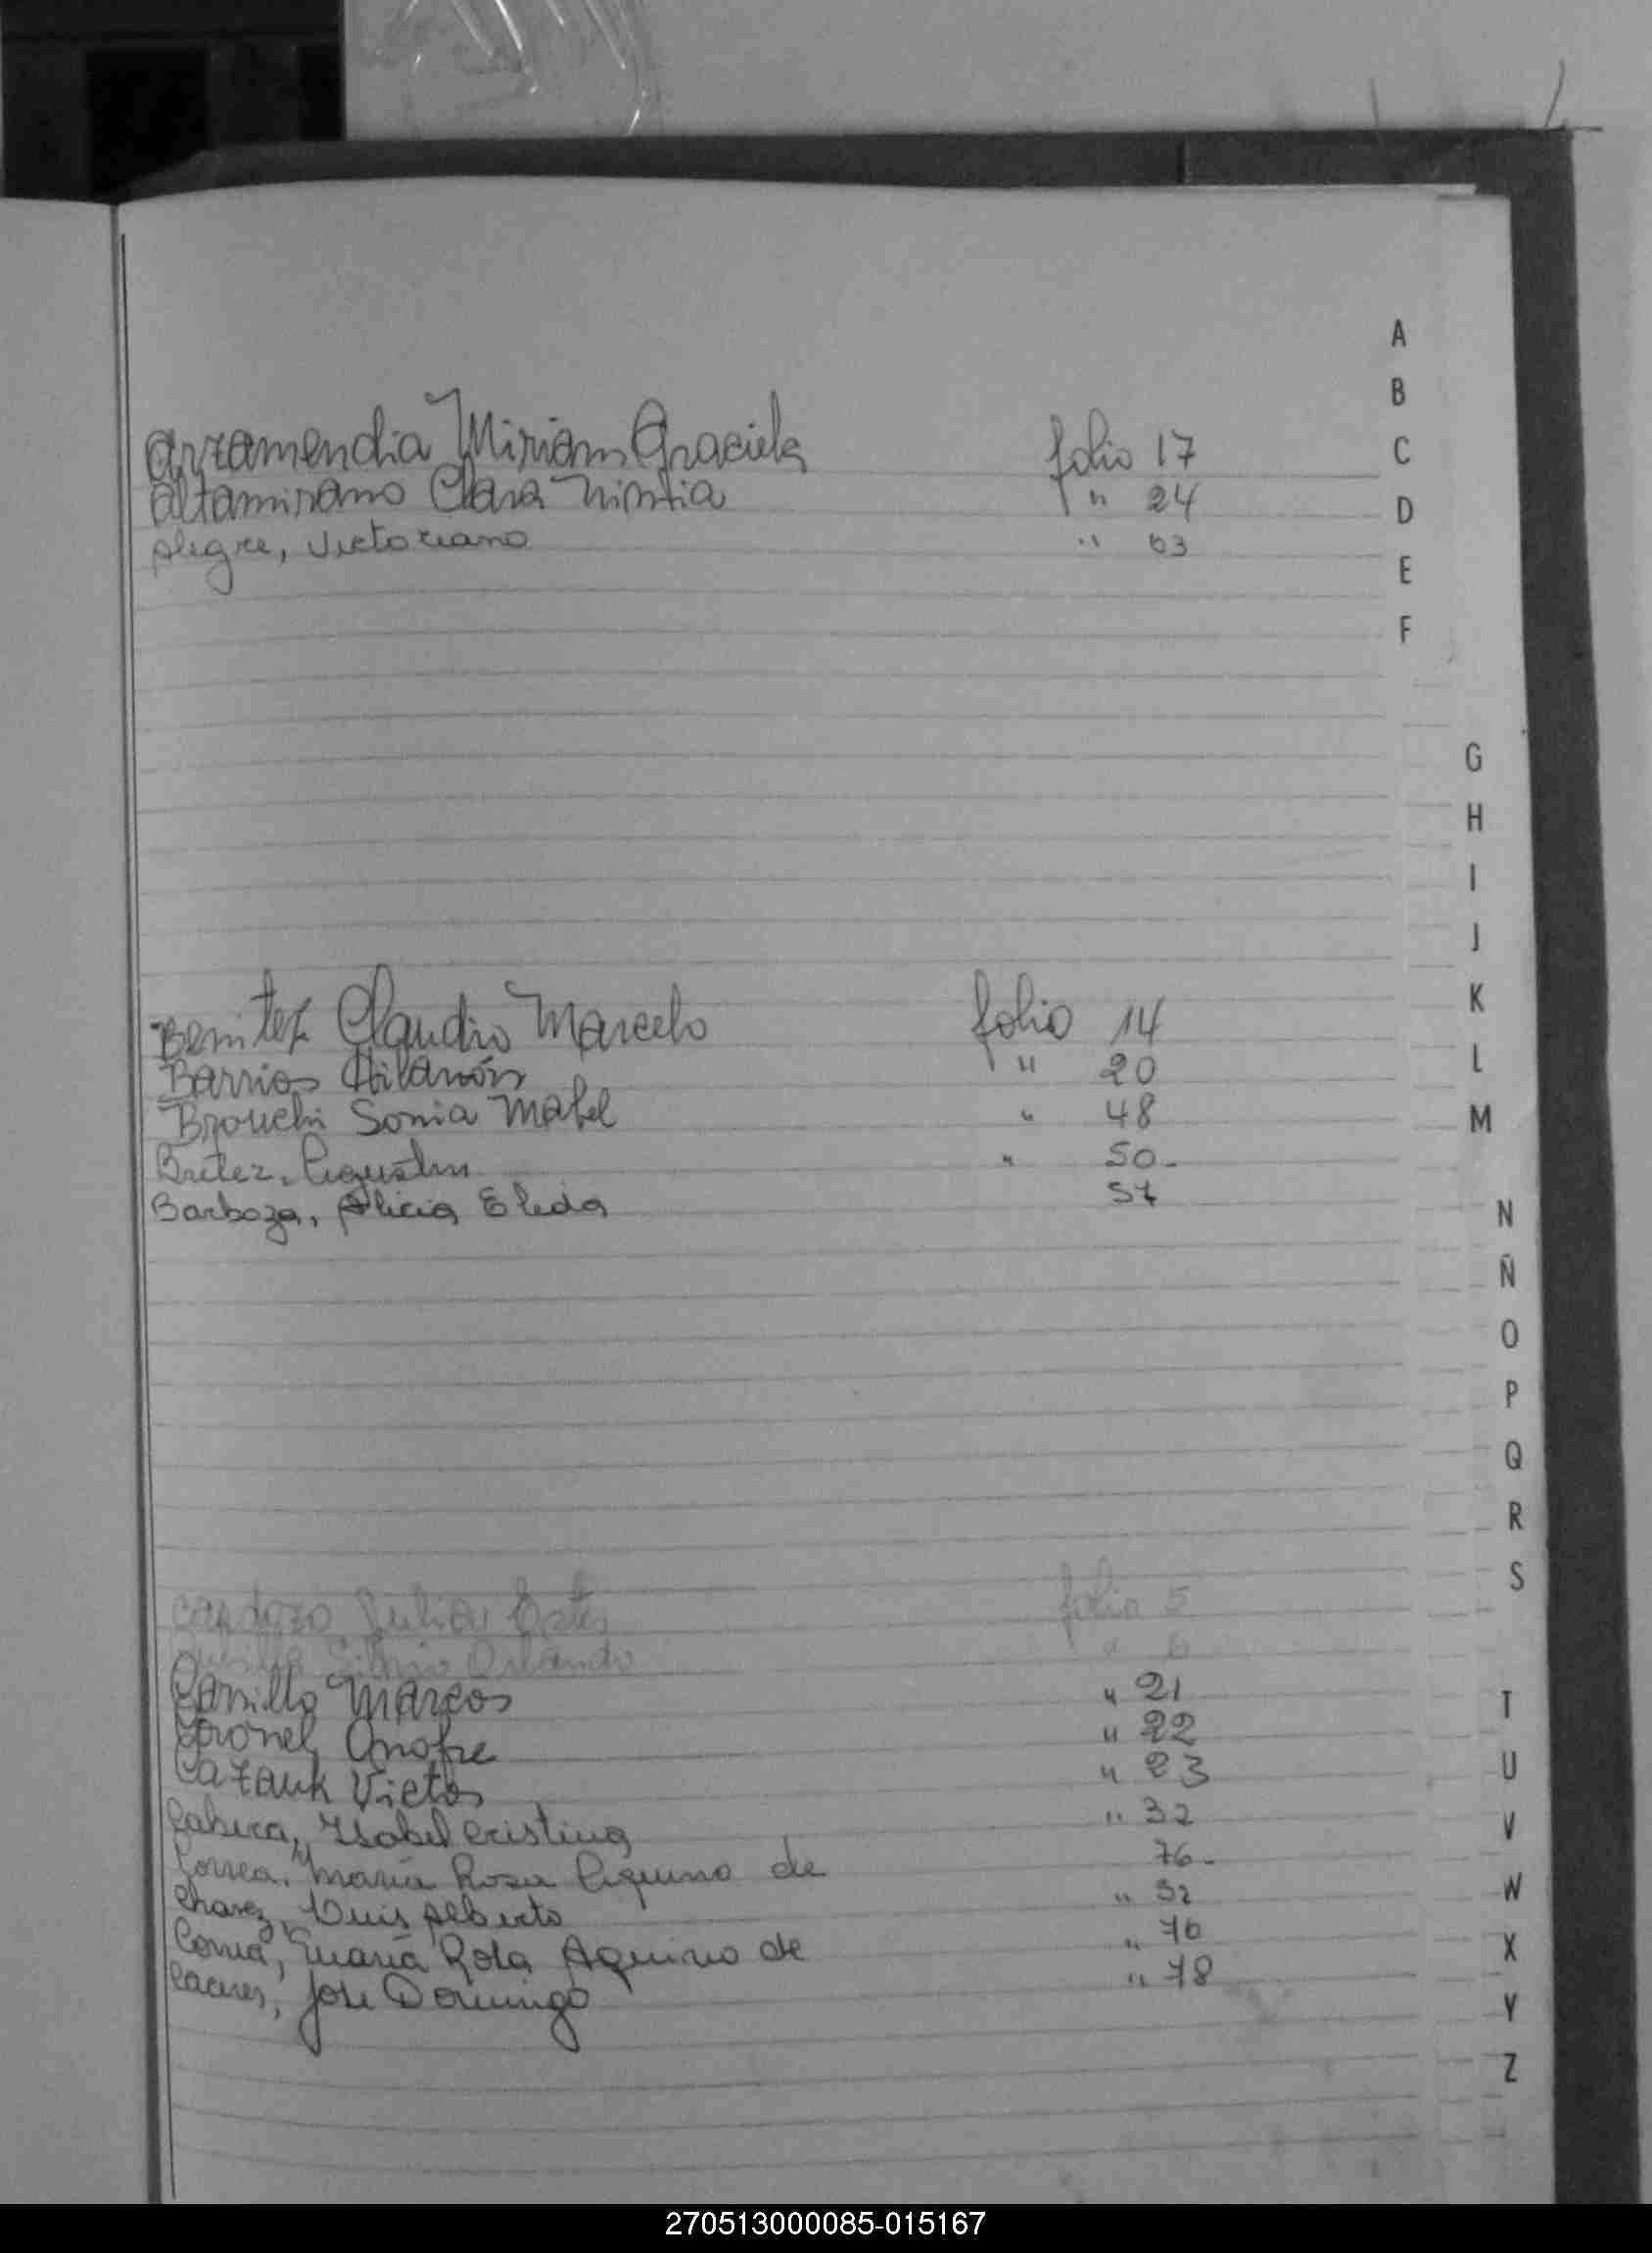 A
B
C
D
E
F
G
H
I
J
K
L
M
N
Ñ
O
P
Q
R
S
T
U
V
W
X
Y
Z
Arzamendia Miriam Graciela folio 17
Altamirano Clara Nimia " 24
Alegre, Victoriano " 63
Benitez Claudio Marcelo folio 14
Barrios Hilarión " 20
Brouchi Sonia Mabel " 48
Britez, Agustin " 50-
Barboza, Alicia Elida 57
Cardozo Julia Ester folio 5
Silvio Orlando " 6
Carrillo Marcos " 21
Coronel, Onofre " 22
Cazauk Victor " 23
Cabrera, Ysabel Cristina " 32
Correa, María Rosa Aquino de 76-
Chavez, Luis Alberto " 32
Correa, María Rosa Aquino de " 76
Caceres, Jose Domingo " 78
270513000085-015167